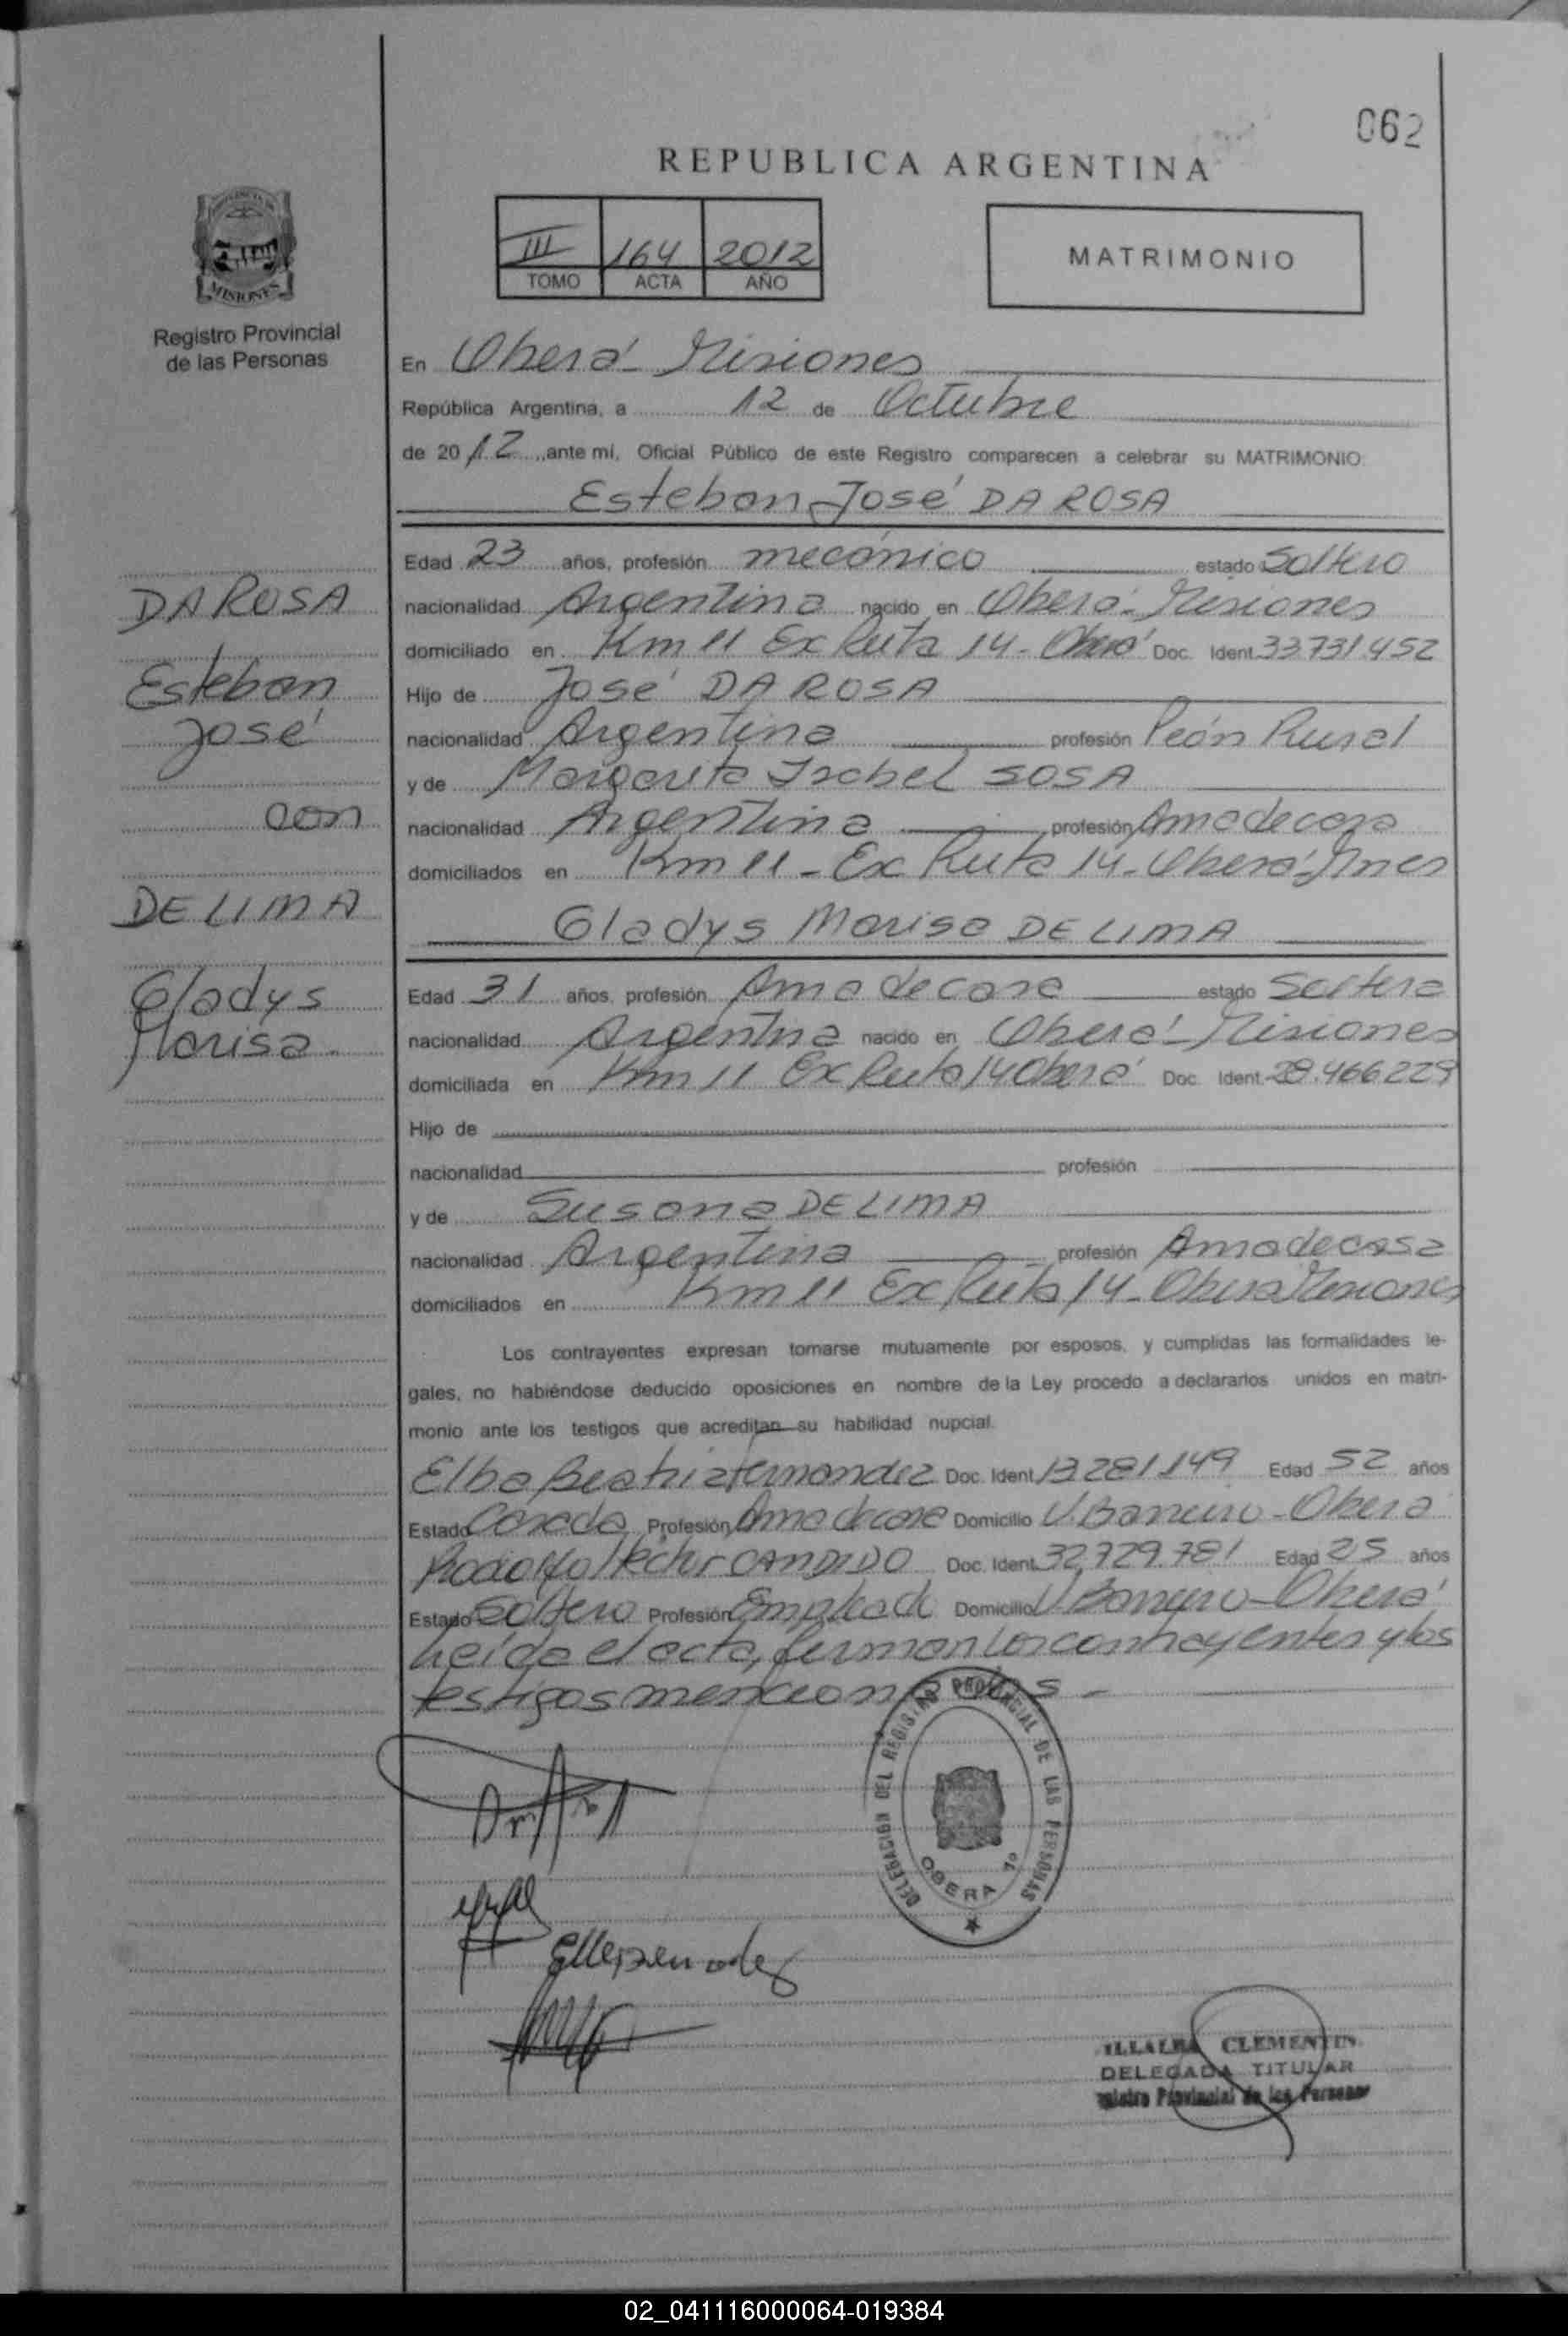 062
REPUBLICA ARGENTINA
III 164 2012
TOMO ACTA AÑO
MATRIMONIO
MISIONES
Registro Provincial
de las Personas
En Oberá - Misiones
República Argentina, a 12 de Octubre
de 2012, ante mí, Oficial Público de este Registro comparecen a celebrar su MATRIMONIO:
Esteban José DA ROSA
Edad 23 años, profesión mecánico estado Soltero
nacionalidad Argentina nacido en Oberá - Misiones
domiciliado en Km 11 Ex Ruta 14 - Oberá Doc. Ident. 33.731.452
Hijo de José DA ROSA
nacionalidad Argentina profesión Peón Rural
y de Margarita Isabel SOSA
nacionalidad Argentina profesión Ama de casa
domiciliados en Km 11 - Ex Ruta 14 - Oberá - Mnes
Gladys Marisa DE LIMA
Edad 31 años, profesión Ama de casa estado Soltera
nacionalidad Argentina nacido en Oberá - Misiones
domiciliada en Km 11 Ex Ruta 14 Oberá Doc. Ident. 28.466.229
Hijo de
nacionalidad profesión
y de Susana DE LIMA
nacionalidad Argentina profesión Ama de casa
domiciliados en Km 11 Ex Ruta 14 - Oberá Misiones
Los contrayentes expresan tomarse mutuamente por esposos, y cumplidas las formalidades le-
gales, no habiéndose deducido oposiciones en nombre de la Ley procedo a declararlos unidos en matri-
monio ante los testigos que acreditan su habilidad nupcial.
Elba Beatriz Fernandez Doc. Ident. 13.281.149 Edad 52 años
Estado Casada Profesión Ama de casa Domicilio V. Barreiro - Oberá
Rodolfo Héctor CANDIDO Doc. Ident. 32.729.781 Edad 25 años
Estado Soltero Profesión Empleado Domicilio V. Barreyro - Oberá
Leída el acta, firman los contrayentes y los
testigos mencionados -
DA ROSA
Esteban
José
con
DE LIMA
Gladys
Marisa
DELEGACION DEL REGISTRO PROVINCIAL DE LAS PERSONAS
OBERA 1º
ILLALBA CLEMENTIN
DELEGADA TITULAR
Registro Provincial de las Personas
02_041116000064-019384